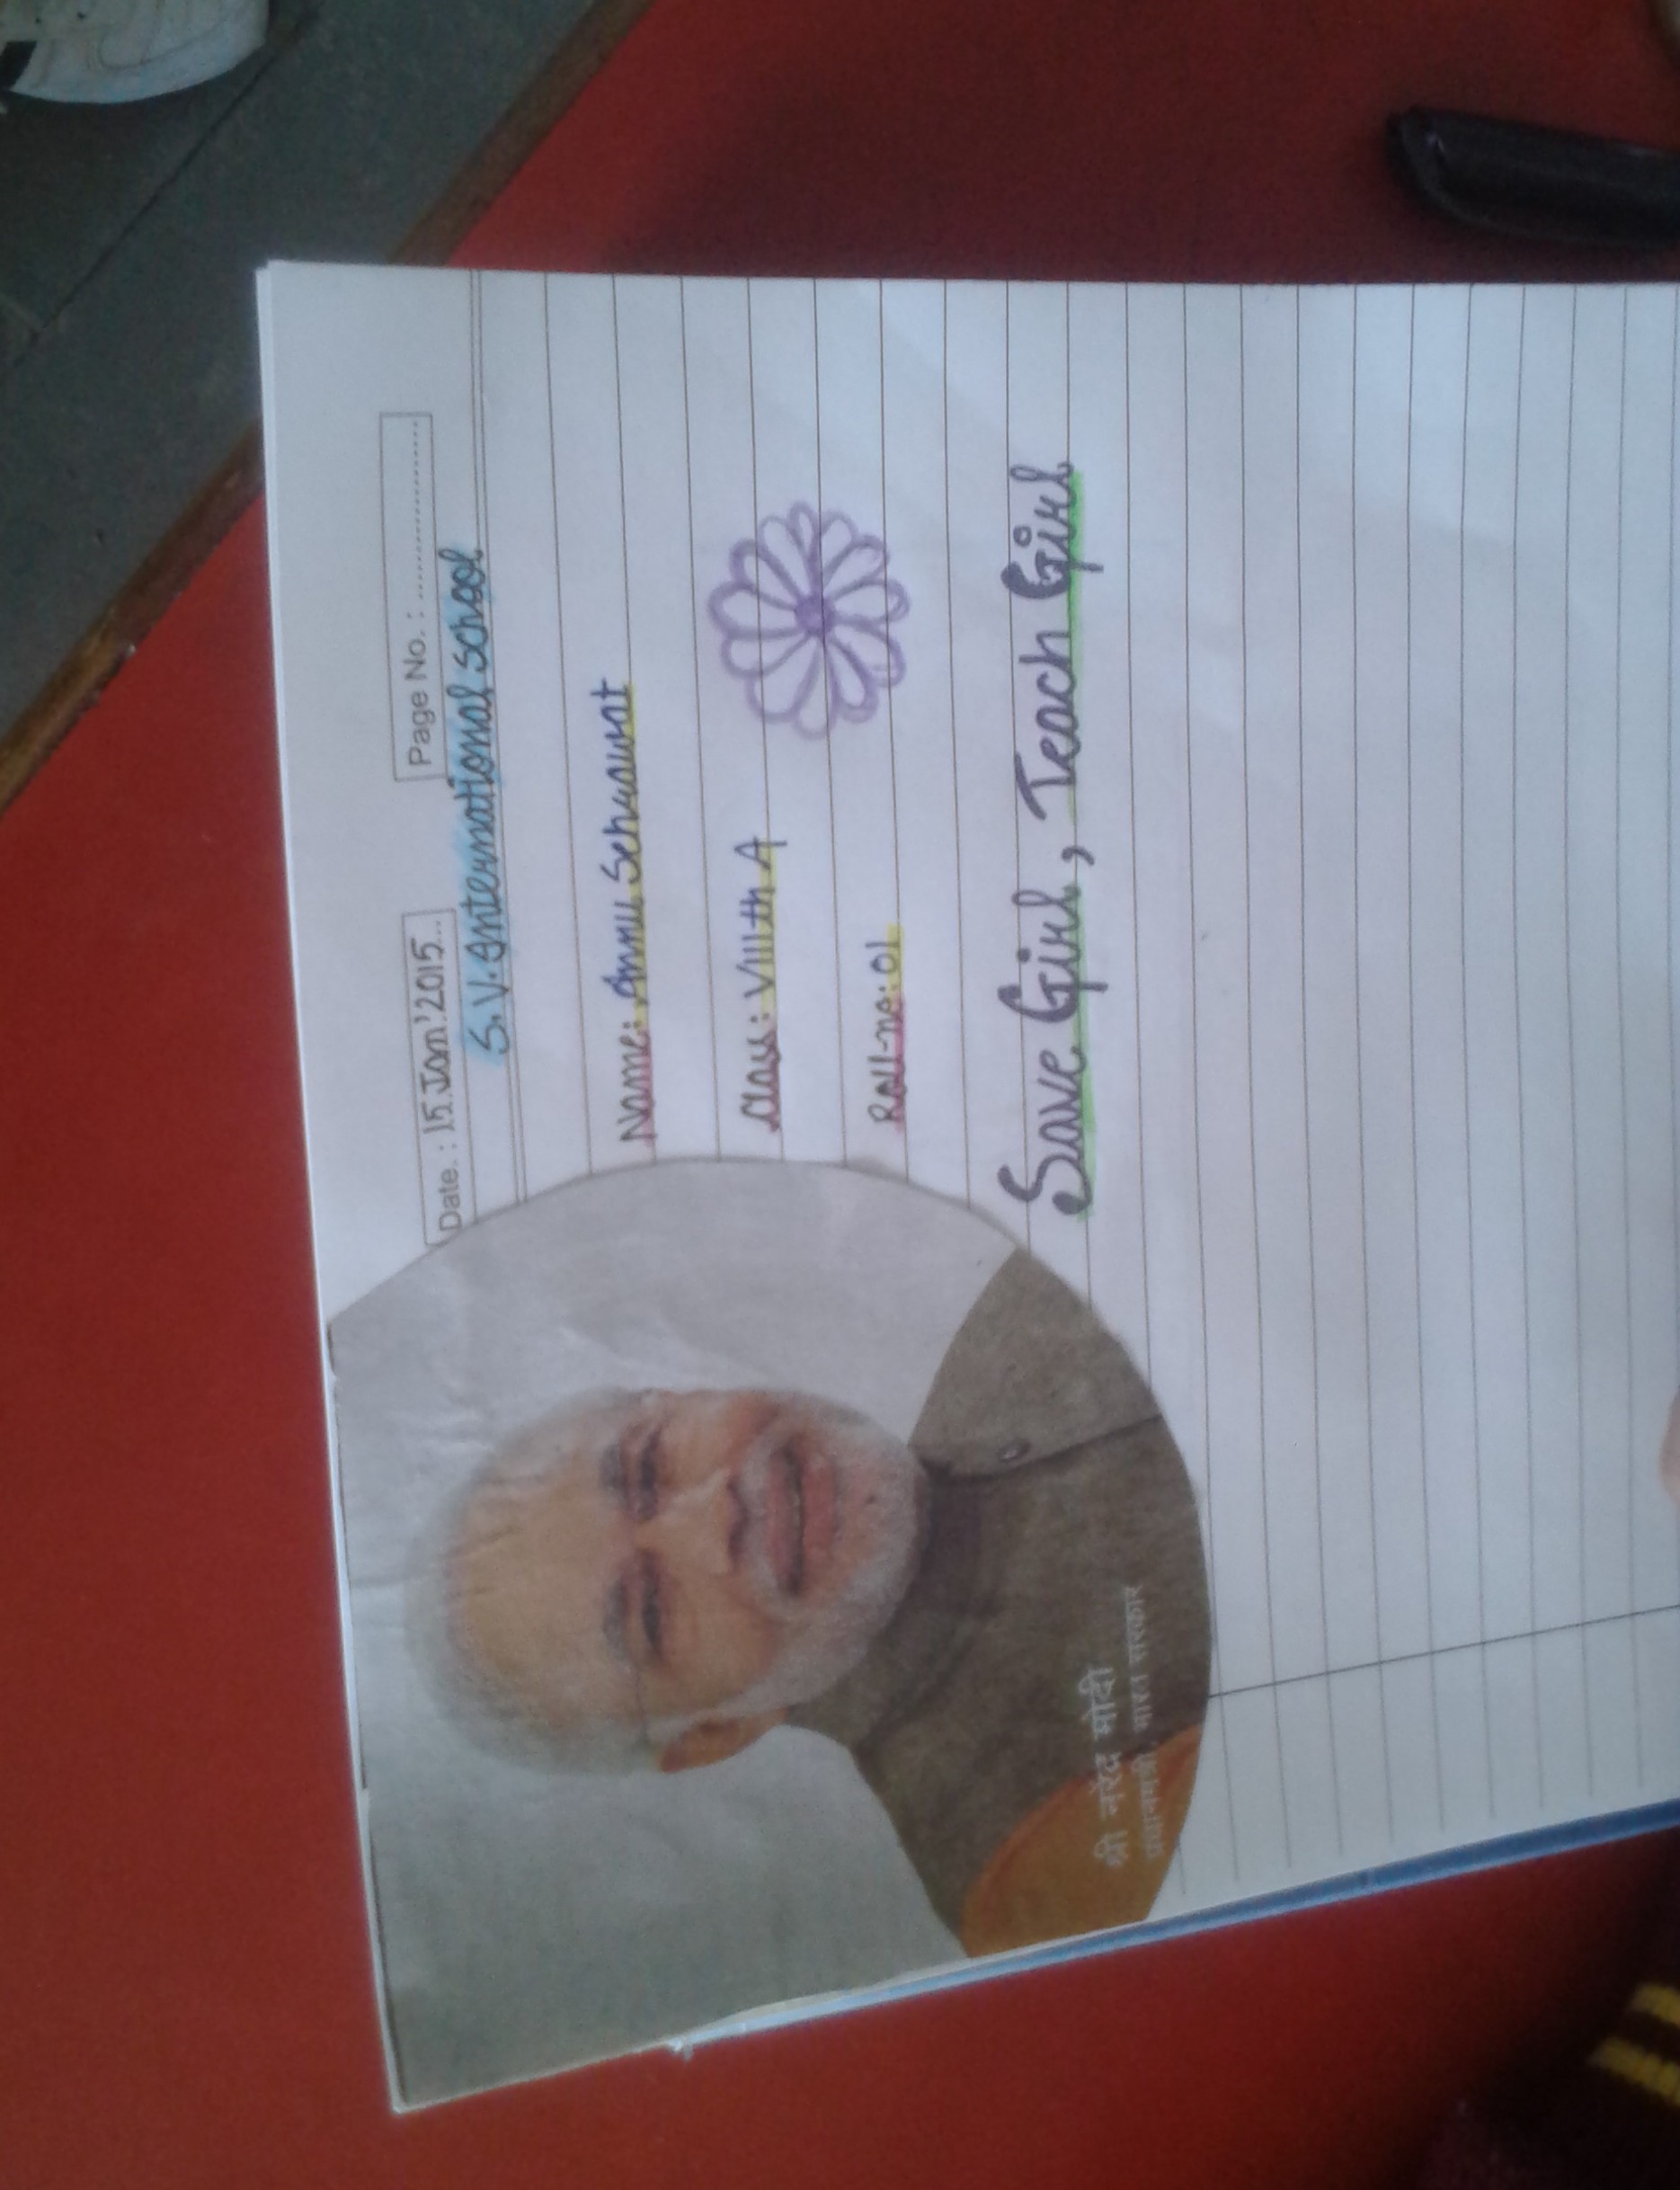 Date. : 15 Jan'2015
Page No. :
S.V. International School
Name: Annu Sehrawat
Class: VIIIth A
Roll-no: 01
Save Girl, Teach Girl
श्री नरेंद्र मोदी
प्रधानमंत्री, भारत सरकार